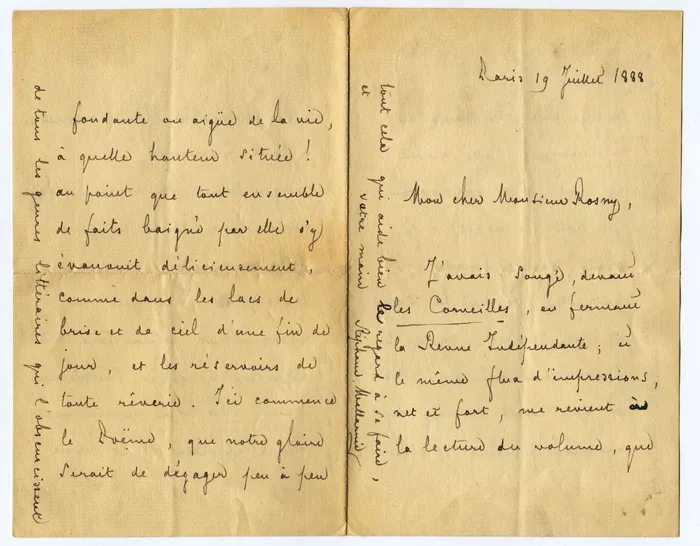 Paris 19 Juillet 1888
Mon cher Monsieur Rosny,
J'avais songé, devant
les Corneilles, en fermant
la Revue Indépendante; et
le même flux d'impressions,
net et fort, me revient à
la lecture du volume, que
fondante ou aigüe de la vie,
à quelle hauteur située!
au point que tout ensemble
de faits baigné par elle s'y
évanouit délicieusement,
comme dans les lacs de
brise et de ciel d'une fin de
jour, et les réservoirs de
toute rêverie. Ici commence
le Poëme, que notre gloire
serait de dégager peu à peu
de tous les genres littéraires qui l'obscurcissent
tout cela qui aide bien le regard à se faire,
et votre main Stéphane Mallarmé